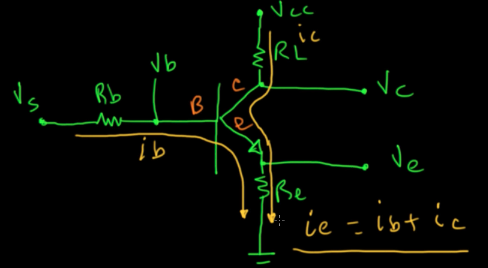 Vcc
ic
RL
C
Vc
Vb
Vs
Rb
B
e
ib
Ve
Re
ie = ib + ic